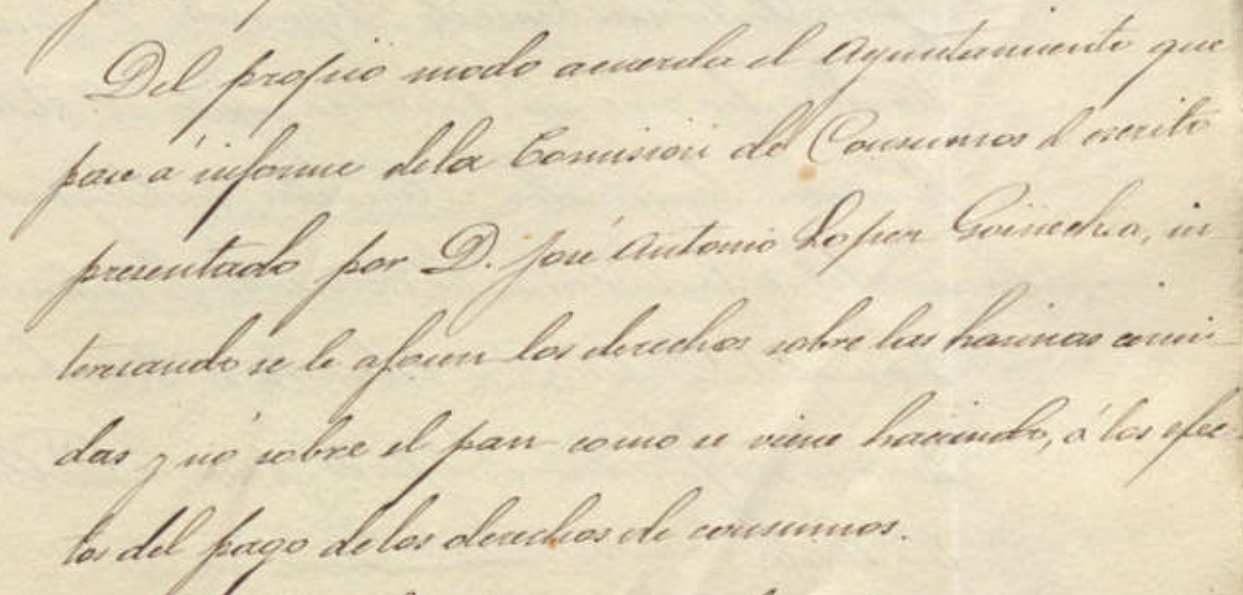 Del propio modo acuerda el Ayuntamiento que
pase á informe dela Comision de Consumos el escrito
presentado por D. José Antonio Lopez Goicoechea, in
teresando se le aforen los derechos sobre las harinas cerni-
das y nó sobre el pan como se viene haciendo, á los efec
tos del pago delos derechos de consumos.